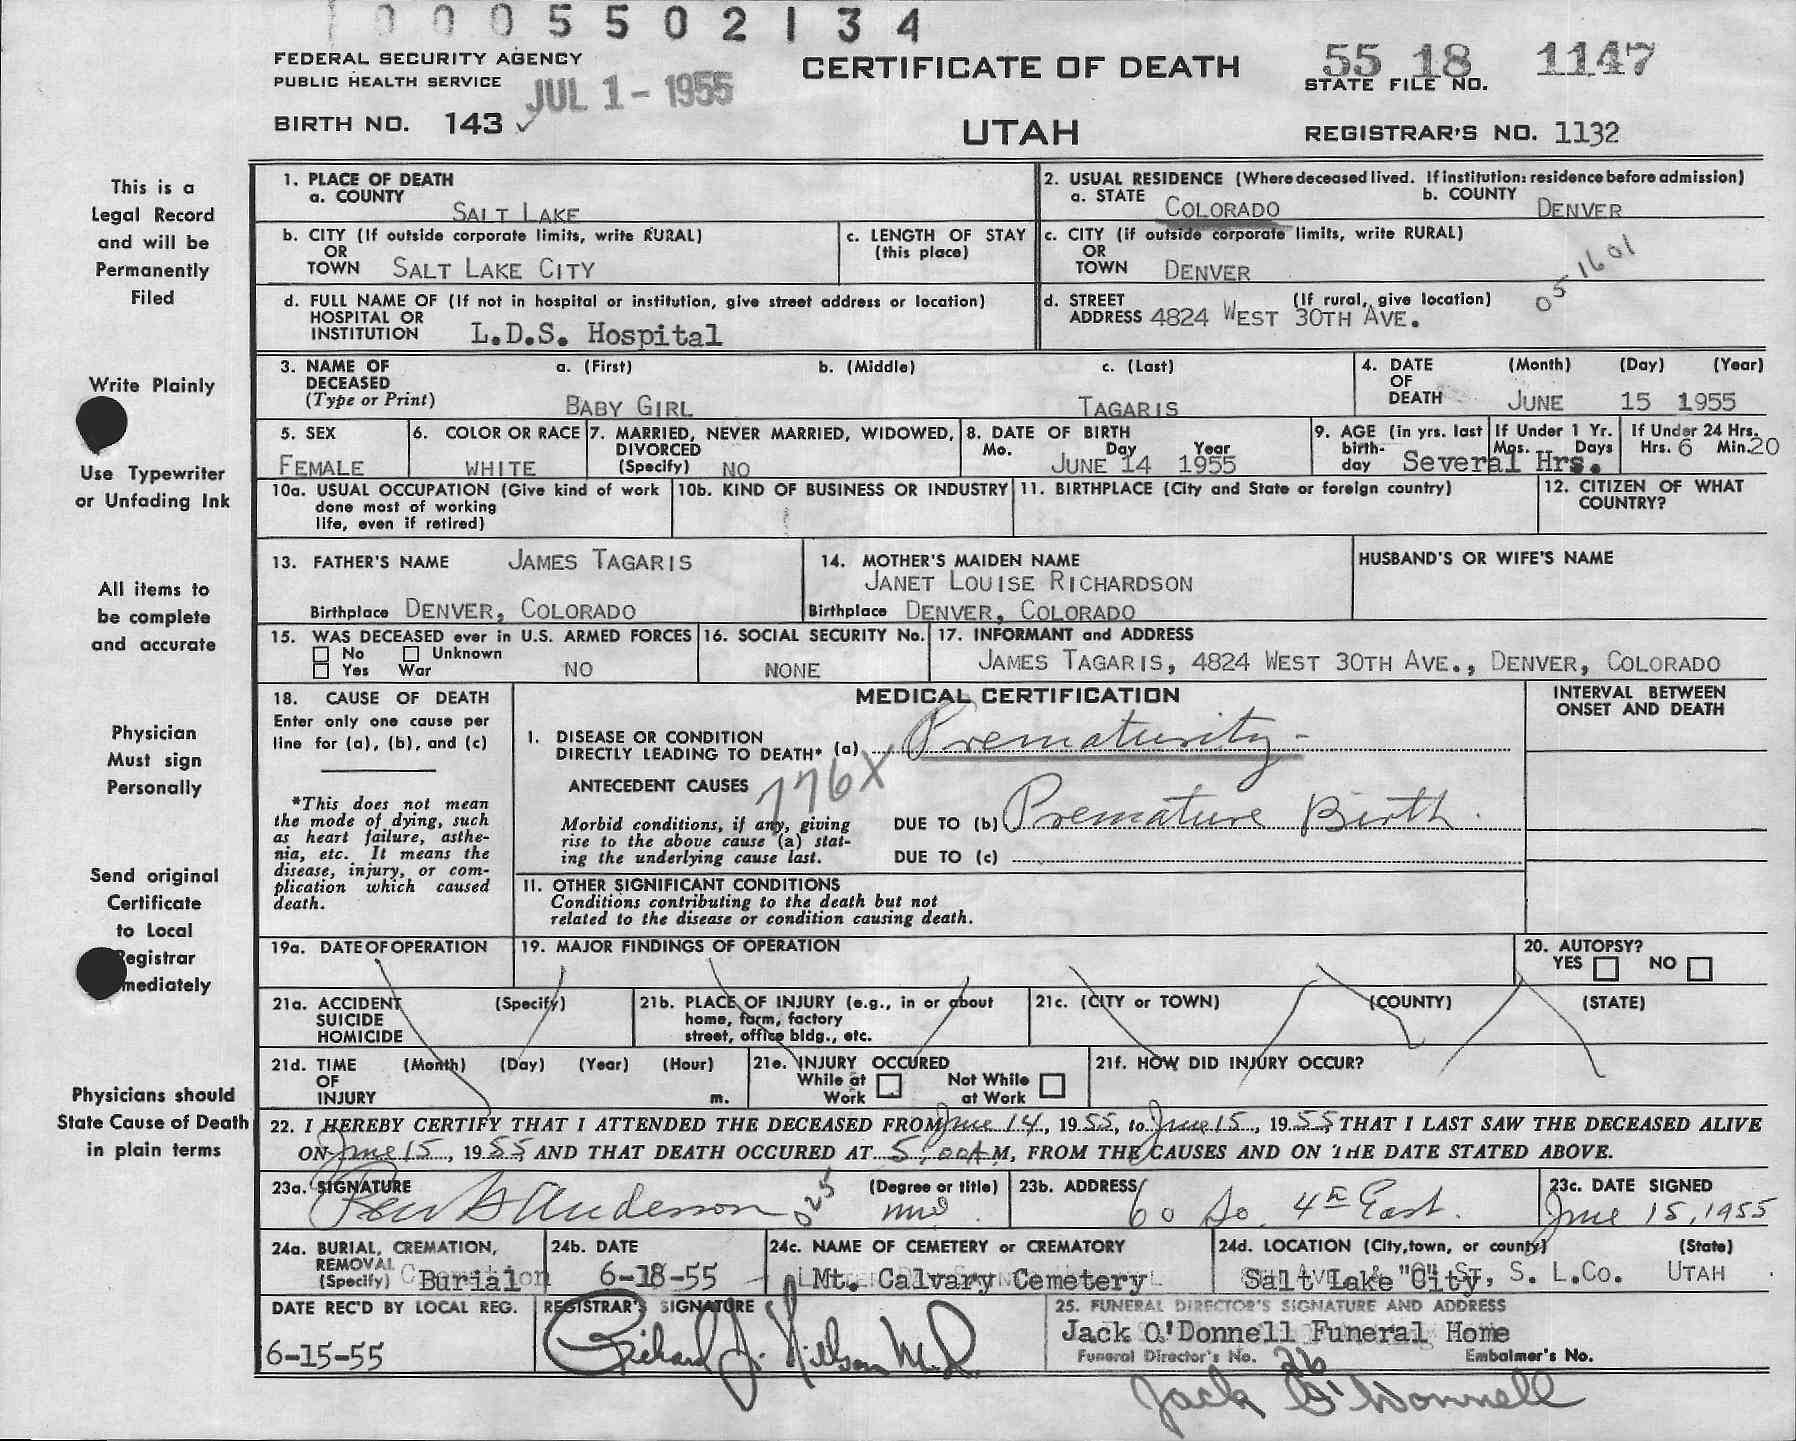 0005502134
FEDERAL SECURITY AGENCY
PUBLIC HEALTH SERVICE
JUL 1 - 1955
CERTIFICATE OF DEATH
55 18 1147
STATE FILE NO.
BIRTH NO. 143
UTAH
REGISTRAR'S NO. 1132
This is a
Legal Record
and will be
Permanently
Filed
Write Plainly
Use Typewriter
or Unfading Ink
All items to
be complete
and accurate
Physician
Must sign
Personally
Send original
Certificate
to Local
Registrar
mediately
Physicians should
State Cause of Death
in plain terms
1. PLACE OF DEATH
a. COUNTY
SALT LAKE
2. USUAL RESIDENCE (Where deceased lived. If institution: residence before admission)
a. STATE COLORADO b. COUNTY DENVER
b. CITY (If outside corporate limits, write RURAL)
OR
TOWN SALT LAKE CITY
c. LENGTH OF STAY
(this place)
c. CITY (if outside corporate limits, write RURAL)
OR
TOWN DENVER
05 1601
d. FULL NAME OF (If not in hospital or institution, give street address or location)
HOSPITAL OR
INSTITUTION L.D.S. Hospital
d. STREET (If rural, give location)
ADDRESS 4824 WEST 30TH AVE.
3. NAME OF a. (First) b. (Middle) c. (Last)
DECEASED
(Type or Print) BABY GIRL TAGARIS
4. DATE (Month) (Day) (Year)
OF
DEATH JUNE 15 1955
5. SEX
FEMALE
6. COLOR OR RACE
WHITE
7. MARRIED, NEVER MARRIED, WIDOWED,
DIVORCED
(Specify) NO
8. DATE OF BIRTH
Mo. Day Year
JUNE 14 1955
9. AGE (in yrs. last
birth-
day Several Hrs.
If Under 1 Yr.
Mos. Days
If Under 24 Hrs.
Hrs. 6 Min. 20
10a. USUAL OCCUPATION (Give kind of work
done most of working
life, even if retired)
10b. KIND OF BUSINESS OR INDUSTRY
11. BIRTHPLACE (City and State or foreign country)
12. CITIZEN OF WHAT
COUNTRY?
13. FATHER'S NAME JAMES TAGARIS
Birthplace DENVER, COLORADO
14. MOTHER'S MAIDEN NAME
JANET LOUISE RICHARDSON
Birthplace DENVER, COLORADO
HUSBAND'S OR WIFE'S NAME
15. WAS DECEASED ever in U.S. ARMED FORCES
No Unknown
Yes War NO
16. SOCIAL SECURITY No.
NONE
17. INFORMANT and ADDRESS
JAMES TAGARIS, 4824 WEST 30TH AVE., DENVER, COLORADO
18. CAUSE OF DEATH
Enter only one cause per
line for (a), (b), and (c)
*This does not mean
the mode of dying, such
as heart failure, asthe-
nia, etc. It means the
disease, injury, or com-
plication which caused
death.
MEDICAL CERTIFICATION
INTERVAL BETWEEN
ONSET AND DEATH
I. DISEASE OR CONDITION
DIRECTLY LEADING TO DEATH* (a) Prematurity -
ANTECEDENT CAUSES 776X
Morbid conditions, if any, giving
rise to the above cause (a) stat-
ing the underlying cause last.
DUE TO (b) Premature Birth
DUE TO (c)
II. OTHER SIGNIFICANT CONDITIONS
Conditions contributing to the death but not
related to the disease or condition causing death.
19a. DATE OF OPERATION
19. MAJOR FINDINGS OF OPERATION
20. AUTOPSY?
YES NO
21a. ACCIDENT (Specify)
SUICIDE
HOMICIDE
21b. PLACE OF INJURY (e.g., in or about
home, farm, factory
street, office bldg., etc.
21c. (CITY or TOWN) (COUNTY) (STATE)
21d. TIME (Month) (Day) (Year) (Hour)
OF
INJURY m.
21e. INJURY OCCURED
While at Work
Not While at Work
21f. HOW DID INJURY OCCUR?
22. I HEREBY CERTIFY THAT I ATTENDED THE DECEASED FROM June 14, 1955, to June 15, 1955 THAT I LAST SAW THE DECEASED ALIVE
ON June 15, 1955, AND THAT DEATH OCCURED AT 5:00A M, FROM THE CAUSES AND ON THE DATE STATED ABOVE.
23a. SIGNATURE (Degree or title)
Anderson 025 MD
23b. ADDRESS
60 So. 4th East.
23c. DATE SIGNED
June 15, 1955
24a. BURIAL, CREMATION,
REMOVAL
(Specify) Burial
24b. DATE
6-18-55
24c. NAME OF CEMETERY or CREMATORY
Mt. Calvary Cemetery
24d. LOCATION (City, town, or county) (State)
Salt Lake City, S. L.Co. UTAH
DATE REC'D BY LOCAL REG.
6-15-55
REGISTRAR'S SIGNATURE
Richard J. Nillson M.D.
25. FUNERAL DIRECTOR'S SIGNATURE AND ADDRESS
Jack O'Donnell Funeral Home
Funeral Director's No. 26 Embalmer's No.
Jack O'Donnell